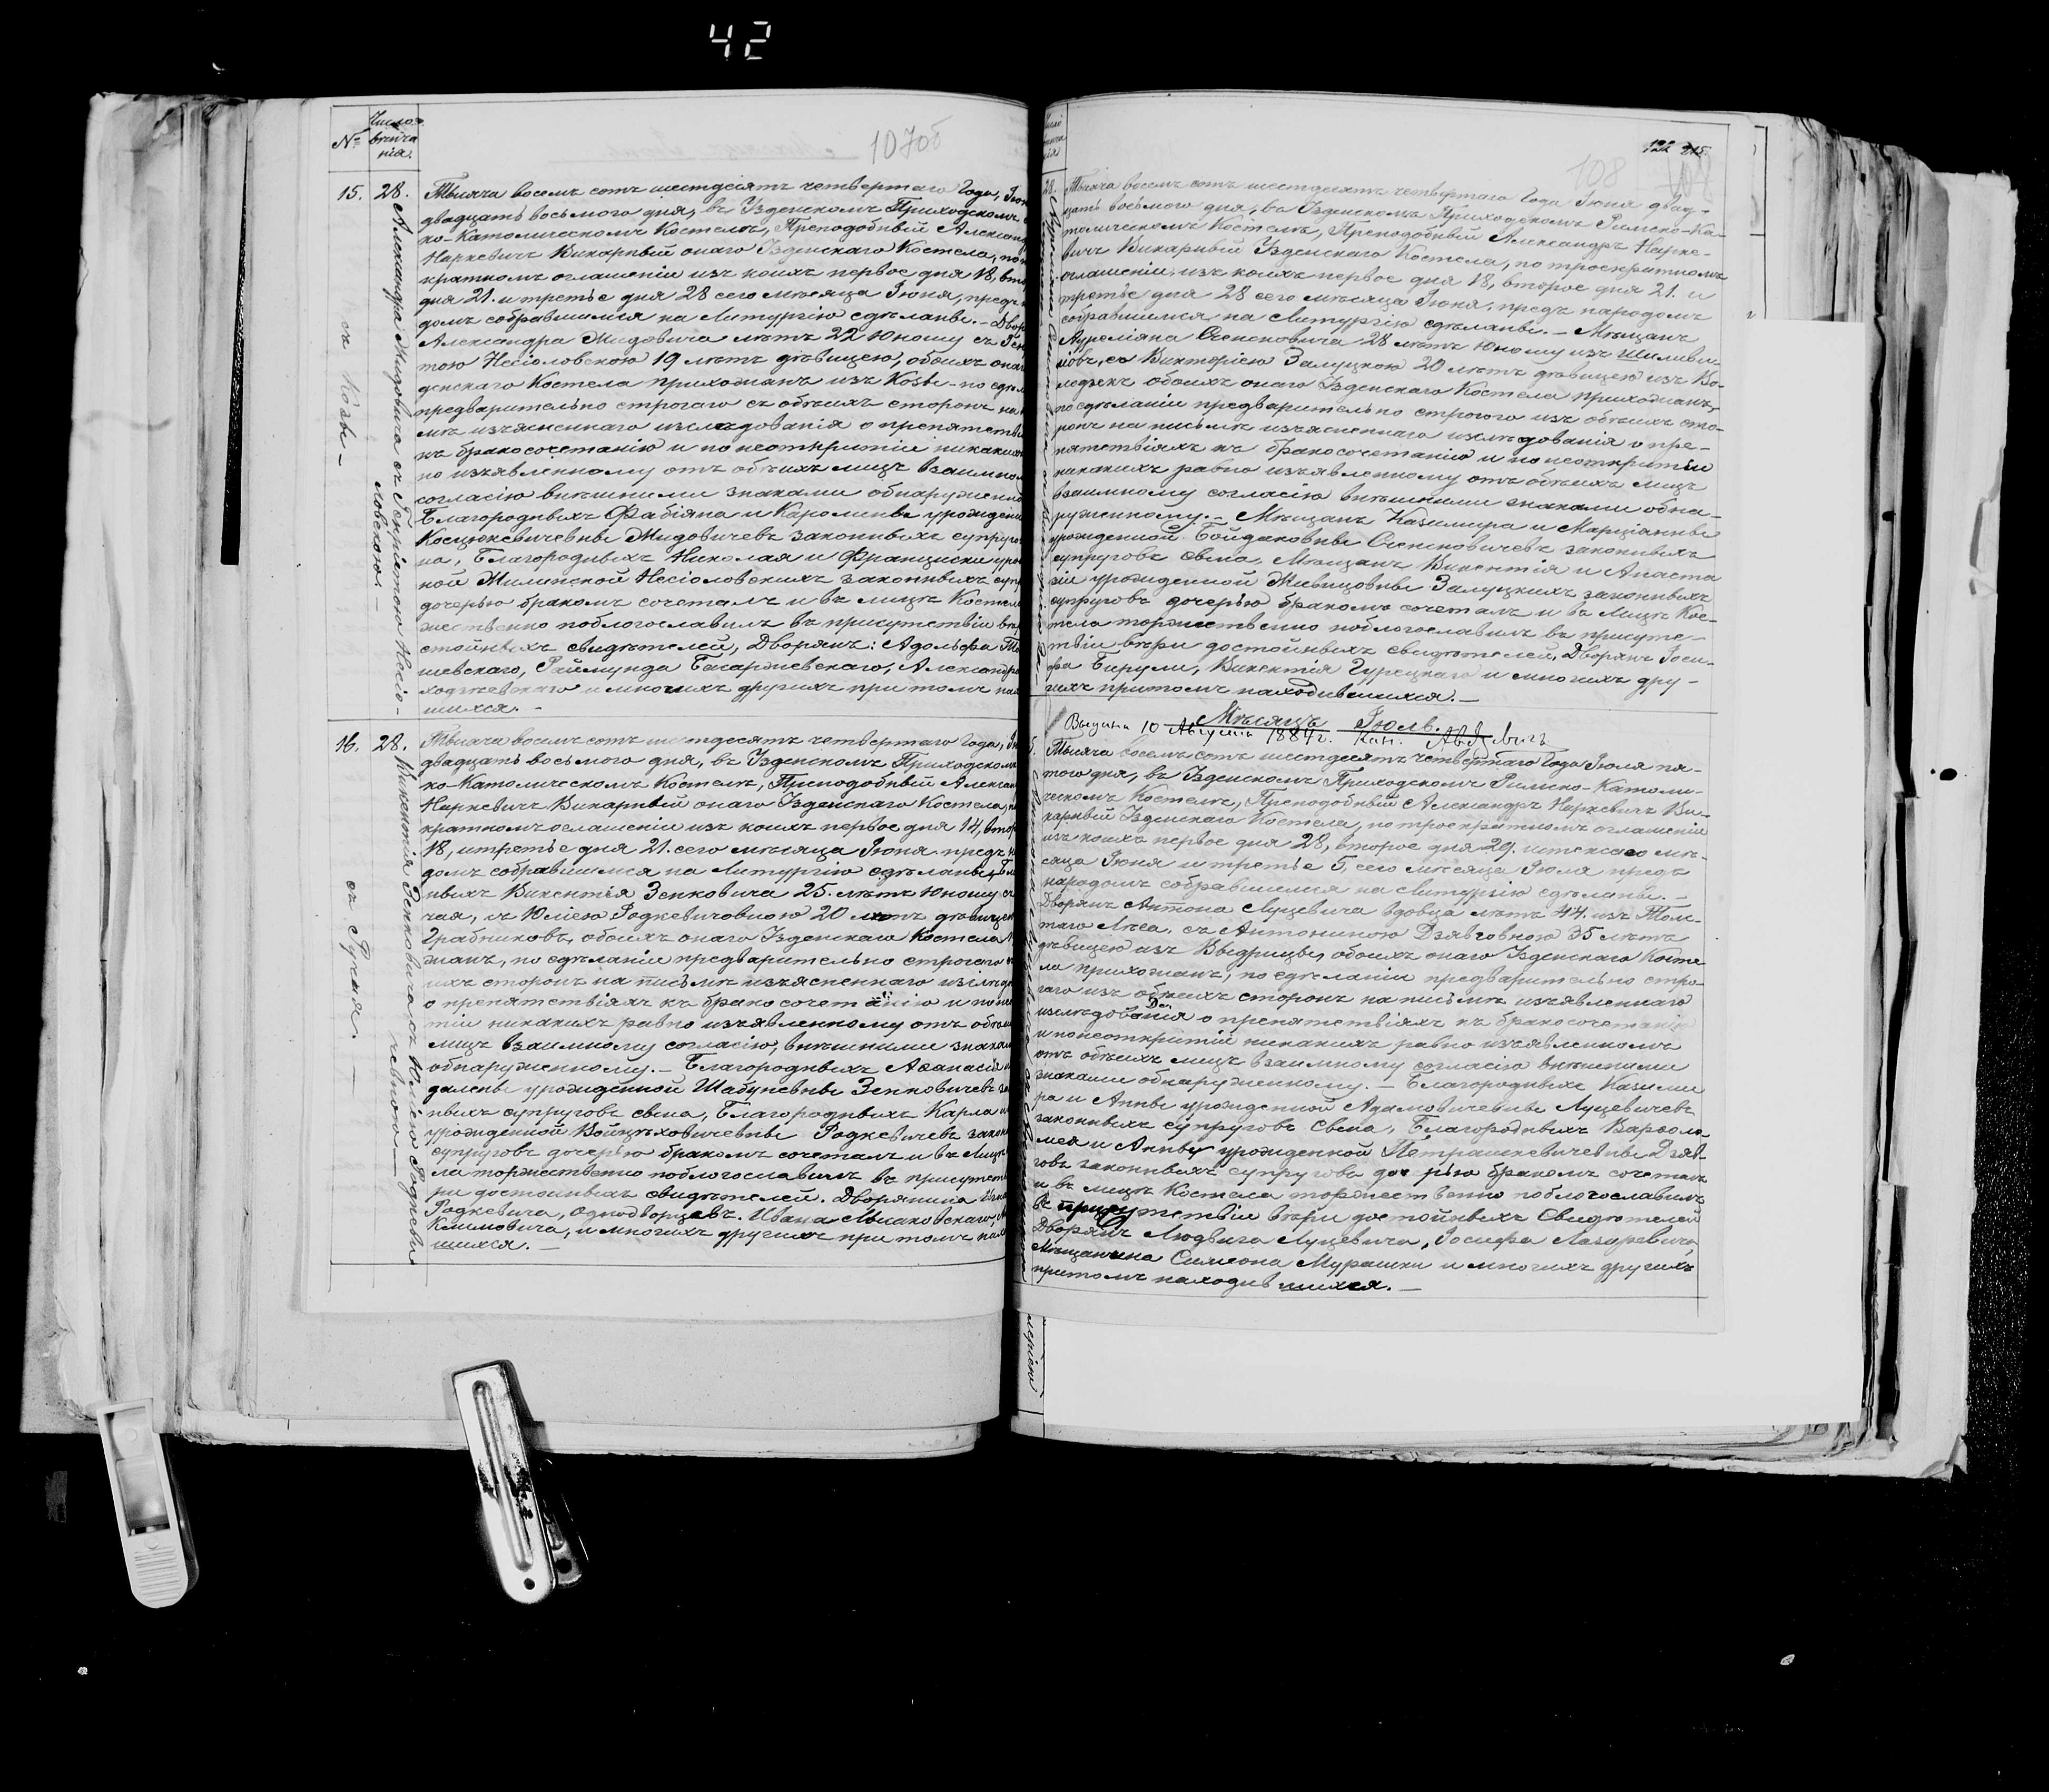 42
№ Число венчания.
107об
15. 28.
Александра Мидовича съ Генріетою Несіоловскою. —
съ Козы —
Тысяча восемь сотъ шестдесятъ четвертаго Года, Іюн
двадцать восьмого дня, въ Узденскомъ Приходскомъ
ко-Католическомъ Костелѣ, Преподобный Александ
Наркевичъ Викарный онаго Узденскаго Костела, по
кратномъ оглашеніи изъ коихъ первое дня 18, вто
дня 21. и третье дня 28 сего мѣсяца Іюня, предъ
домъ собравшимся на Литургію сдѣланы. — Двор
Александра Мидовича лѣтъ 22 Юношу съ Ген
тою Несіоловскою 19 лѣтъ дѣвицею, обоихъ она
денскаго Костела прихожанъ изъ Козы — по сдѣл
предварительно строгаго съ обѣихъ сторонъ на
мѣ изъясненнаго изслѣдованія о препятстві
къ бракосочетанію и по неоткрытіи никаких
но изъявленному отъ обѣихъ лицъ взаимном
согласію внѣшними знаками обнаруженно
Благородныхъ Фабіяна и Каролины урожденн
Косцюкевичевны Мидовичевъ законныхъ супруго
на, Благородныхъ Николая и Франциски уро
ной Жилинской Несіоловскихъ законныхъ суп
дочерью бракомъ сочеталъ и въ лицѣ Костел
жественно поблогославилъ въ присутствіи вѣр
стойныхъ свидѣтелей, Дворянъ: Адольфа
шевскаго, Раймунда Багаржевскаго, Александр
ходзѣевскаго и многихъ другихъ при томъ на
шихся. —
16. 28.
Викентія Зенковича съ Юліею Родкевичевною —
съ Ручая. —
Тысяча восемъ сотъ шестдесятъ четвертаго Года,
двадцать восьмого дня, въ Узденскомъ Приходском
ко-Католическомъ Костелѣ, Преподобный Алексан
Наркевичъ Викарный онаго Узденскаго Костела,
кратномъ оглашеніи изъ коихъ первое дня 14, втор
18, и третье дня 21. сего мѣсяца Іюня предъ
домъ собравшимся на Литургію сдѣланы,
ныхъ Викентія Зенковича 25. лѣтъ Юношу съ
чая, съ Юліею Родкевичовною 20 лѣтъ дѣвице
Грабниковъ, обоихъ онаго Узденскаго Костела
жанъ, по сдѣланіи предварительно строгаго
ихъ сторонъ на письмѣ изъясненнаго изслѣд
о препятствіяхъ къ бракосочетанію и по не
тіи никакихъ равно изъявленному отъ обѣи
лицъ взаимному согласію, внѣшними знакам
обнаруженному. — Благородныхъ Аѳанасія
далены урожденной Шабуневны Зенковичевъ
ныхъ супруговъ сына, Благородныхъ Карла и
урожденной Войцѣховичевны Родкевичевъ закон
супруговъ дочерью бракомъ сочеталъ и въ Лицѣ
ла торжественно поблогославилъ въ присутст
ри достойныхъ свидѣтелей. Дворянина
Родкевича, однодворцевъ. Ивана Мысаковскаго,
Климовича, и многихъ другихъ при томъ на
шихся. —
122 215
108
28.
Тысяча восемъ сотъ шестдесятъ четвертаго Года Іюня двад-
цать восьмого дня, въ Узденскомъ Приходскомъ Римско-Ка-
толическомъ Костелѣ, Преподобный Александръ Нарке-
вичъ Викарный Узденскаго Костела, по троекратномъ
оглашеніи, изъ коихъ первое дня 18, второе дня 21. и
третье дня 28 сего мѣсяца Іюня, предъ народомъ
собравшимся на Литургію сдѣланы. — Мѣщанъ
Ауреліяна Осенсковича 28 лѣтъ Юношу изъ
съ Викторіею Залуцкою 20 лѣтъ дѣвицею изъ Во-
лодзекъ обоихъ онаго Узденскаго Костела прихожанъ,
по сдѣланіи предварительно строгого изъ обѣихъ сто-
ронъ на письмѣ изъясненнаго изслѣдованія о пре-
пятствіяхъ къ бракосочетанію и по неоткрытіи
никакихъ равно изъявленному отъ обѣихъ лицъ
взаимному согласію внѣшними знаками обна-
руженному. — Мѣщанъ Казимира и Марціанны
урожденной Бойдаковны Осенсковичевъ законныхъ
супруговъ сына, Мѣщанъ Викентія и Анаста
зіи урожденной Жывицовны Залуцкихъ законныхъ
супруговъ дочерью бракомъ сочеталъ и въ Лицѣ Кос-
тела торжественно поблогославилъ въ присутс-
твіи вѣри достойныхъ свидѣтелей, Дворянъ Іоси-
фа Бирули, Викентія Гурецкаго и многихъ дру-
гихъ притомъ находившихся. —
Мѣсяцъ Іюль.
Выдана 10 Августа 1884 г. Кан.
Тысяча восемъ сотъ шестдесятъ четвертаго Года Іюля пя-
того дня, въ Узденскомъ Приходскомъ Римско-Католи-
ческомъ Костелѣ, Преподобный Александръ Наркевичъ Ви-
карный Узденскаго Костела, по троекратномъ оглашеніи
изъ коихъ первое дня 28, второе дня 29. истекшаго мѣ-
сяца Іюня и третье 5, сего мѣсяца Іюля предъ
народомъ собравшимся на Литургію сдѣланы. —
Дворянъ Антона Луцевича вдовца лѣтъ 44. изъ Толс-
таго Лѣса, съ Антониною Дзявговною 35 лѣтъ
дѣвицею изъ Выдрицы, обоихъ онаго Узденскаго Косте
ла прихожанъ, по сдѣланіи предварительно стро-
гаго изъ обѣихъ сторонъ на письмѣ изъявленнаго
изслѣдованія о препятствіяхъ къ бракосочетанію
и по неоткрытіи никакихъ равно изъявленномъ
отъ обѣихъ лицъ взаимному согласію внѣшними
знаками обнаруженному. — Благородныхъ Казими
ра и Анны урожденной Адамовичевны Луцевичевъ
законныхъ супруговъ сына, Благородныхъ Варѳоло-
мея и Анны урожденной Петрашкевичевны Дзяв-
говъ законныхъ супруговъ дочерью бракомъ сочеталъ
и въ лицѣ Костела торжественно поблогославилъ
въ присутствіи вѣри достойныхъ Свидѣтелей
Дворянъ Людвига Луцевича, Іосифа Лазаревича,
Мѣщанина Симеона Мурашки и многихъ другихъ
притомъ находившихся. —